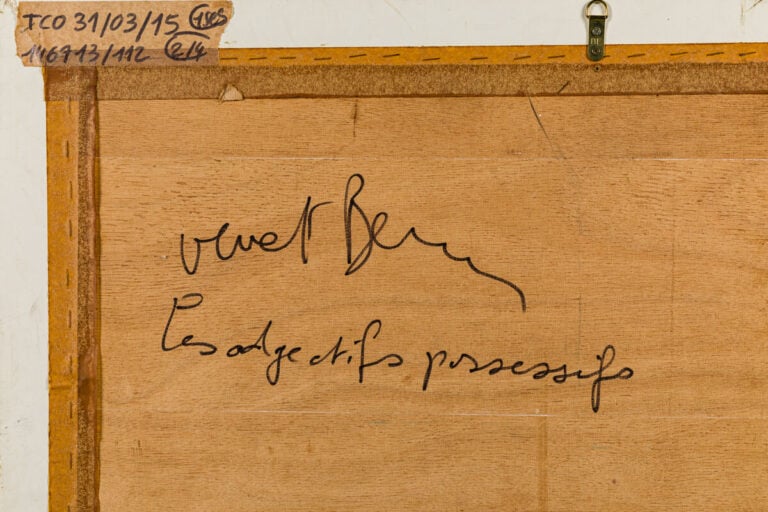 TCO 31/03/15 145
146713/112 2/4
BE
vevet Ben
Les adjectifs possessifs